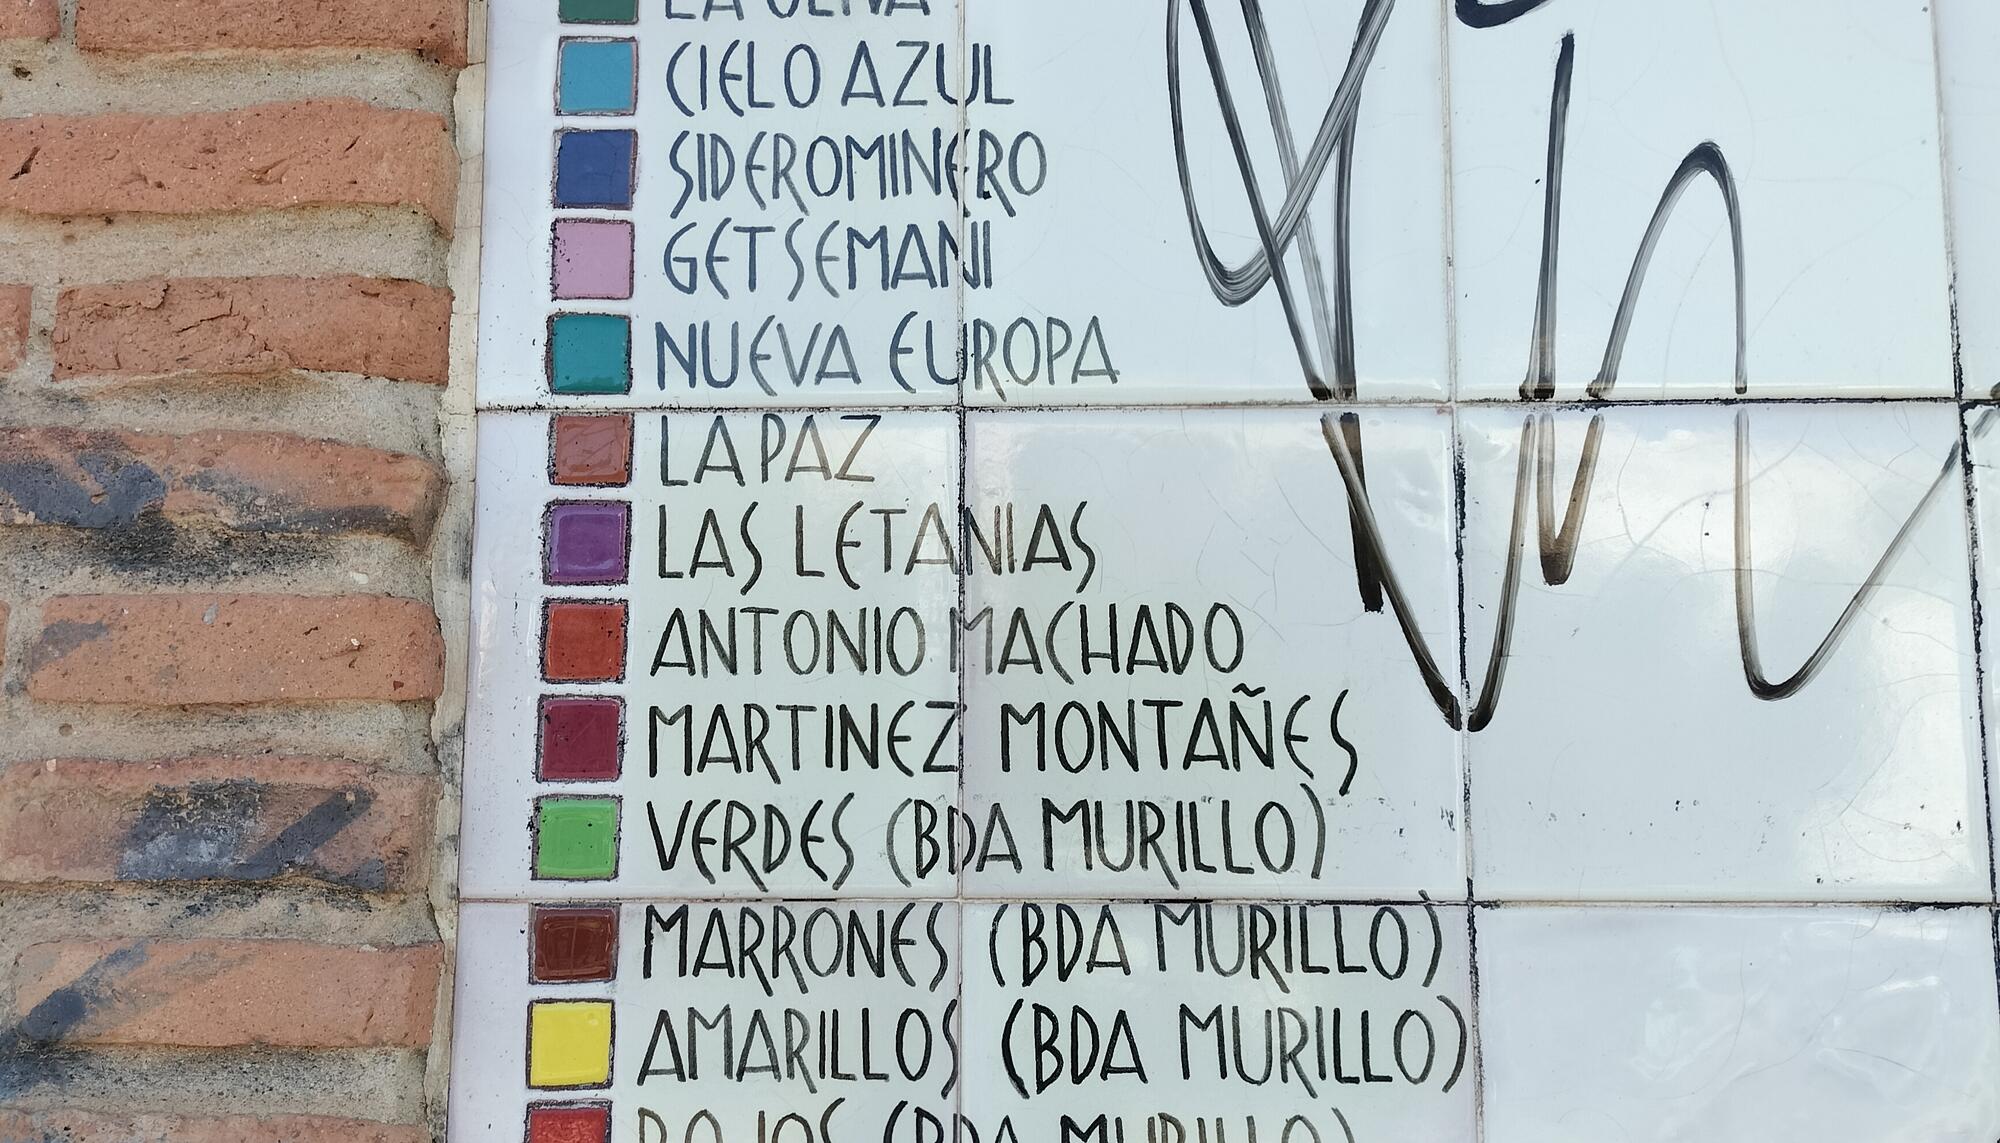 LA OLIVA
CIELO AZUL
SIDEROMINERO
GETSEMANI
NUEVA EUROPA
LA PAZ
LAS LETANIAS
ANTONIO MACHADO
MARTINEZ MONTAÑES
VERDES (BDA MURILLO)
MARRONES (BDA MURILLO)
AMARILLOS (BDA MURILLO)
ROJOS (BDA MURILLO)